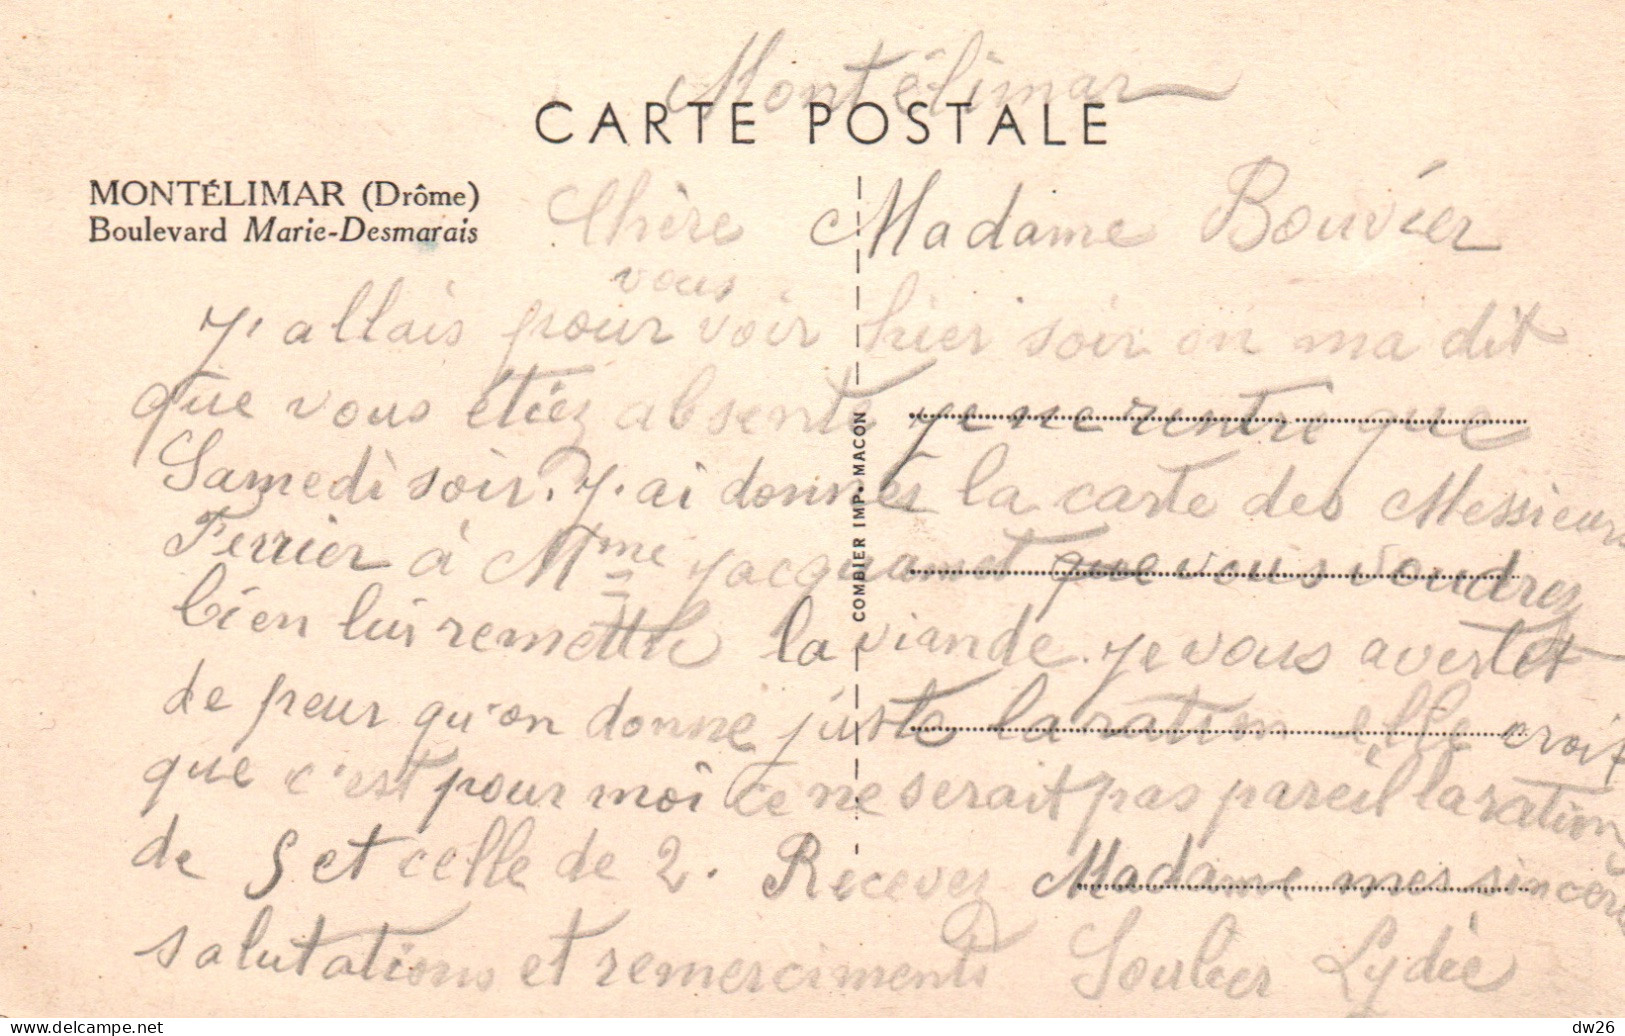 Montélimar
CARTE POSTALE
MONTÉLIMAR (Drôme)
Boulevard Marie-Desmarais
Chère Madame Bouvier
vous
J'allais pour voir hier soir on ma dit
que vous étiez absente je ne rentre que
Samedi soir. J'ai donner la carte des Messieurs
Ferrier à Mme Jacquamet que vous voudrez
bien lui remettre la viande. je vous avertit
de peur qu'on donne juste la ration elle croit
que c'est pour moi ce ne serait pas pareil la ration
de 5 et celle de 2. Recevez Madame mes sincères
salutations et remerciments Soulier Lydie
COMBIER IMP. MACON
dw26